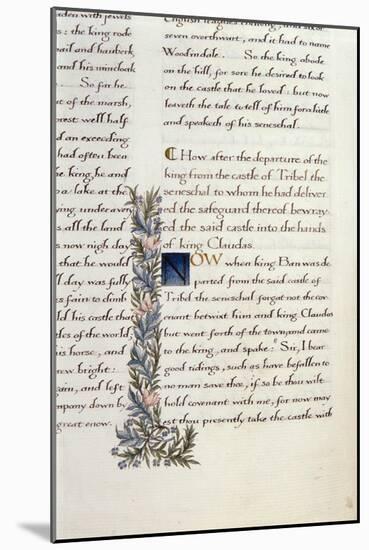 den with jewels
us: the king rode
nail and hauberk
and his mincloak
. So far he
t of the marsh,
rest well half
d an exceeding
had often been
he king, he and
o a lake at the
ng under a ver
d, all the land
as now nigh day
that he would
l day was fully
as fain to climb
ld look at his
tles of the world
his horse, and
rew bright:
ain, and left
mpany down by
great enow.
English leagues
seven overthwart, and it had to name
Woodindale. So the king abode
on the hill, for sore he desired to look
on the castle that he loved: but now
leaveth the tale to tell of him for a little
and speaketh of his seneschal.
How after the departure of the
king from the castle of Tribel the
seneschal to whom he had deliver
ed the safeguard thereof bewray
ed the said castle into the hands
of king Claudas.
NOW when king Ban was de
parted from the said castle of
Tribel the seneschal forgat not the cov
enant betwixt him and king Claudas
but went forth of the town and came
to the king, and spake: "Sir, I bear
good tidings, such as have befallen to
no man save thou, if so be thou wilt
hold covenant with me, for now may
est thou presently take the castle with